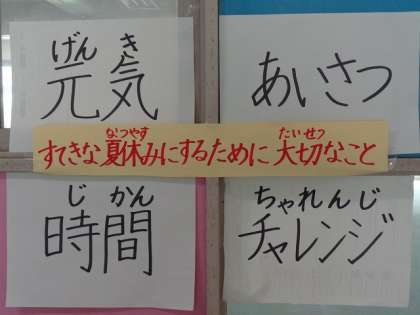 げんき
元気
あいさつ
なつやす たいせつ
すてきな夏休みにするために大切なこと
じかん
時間
ちゃれんじ
チャレンジ